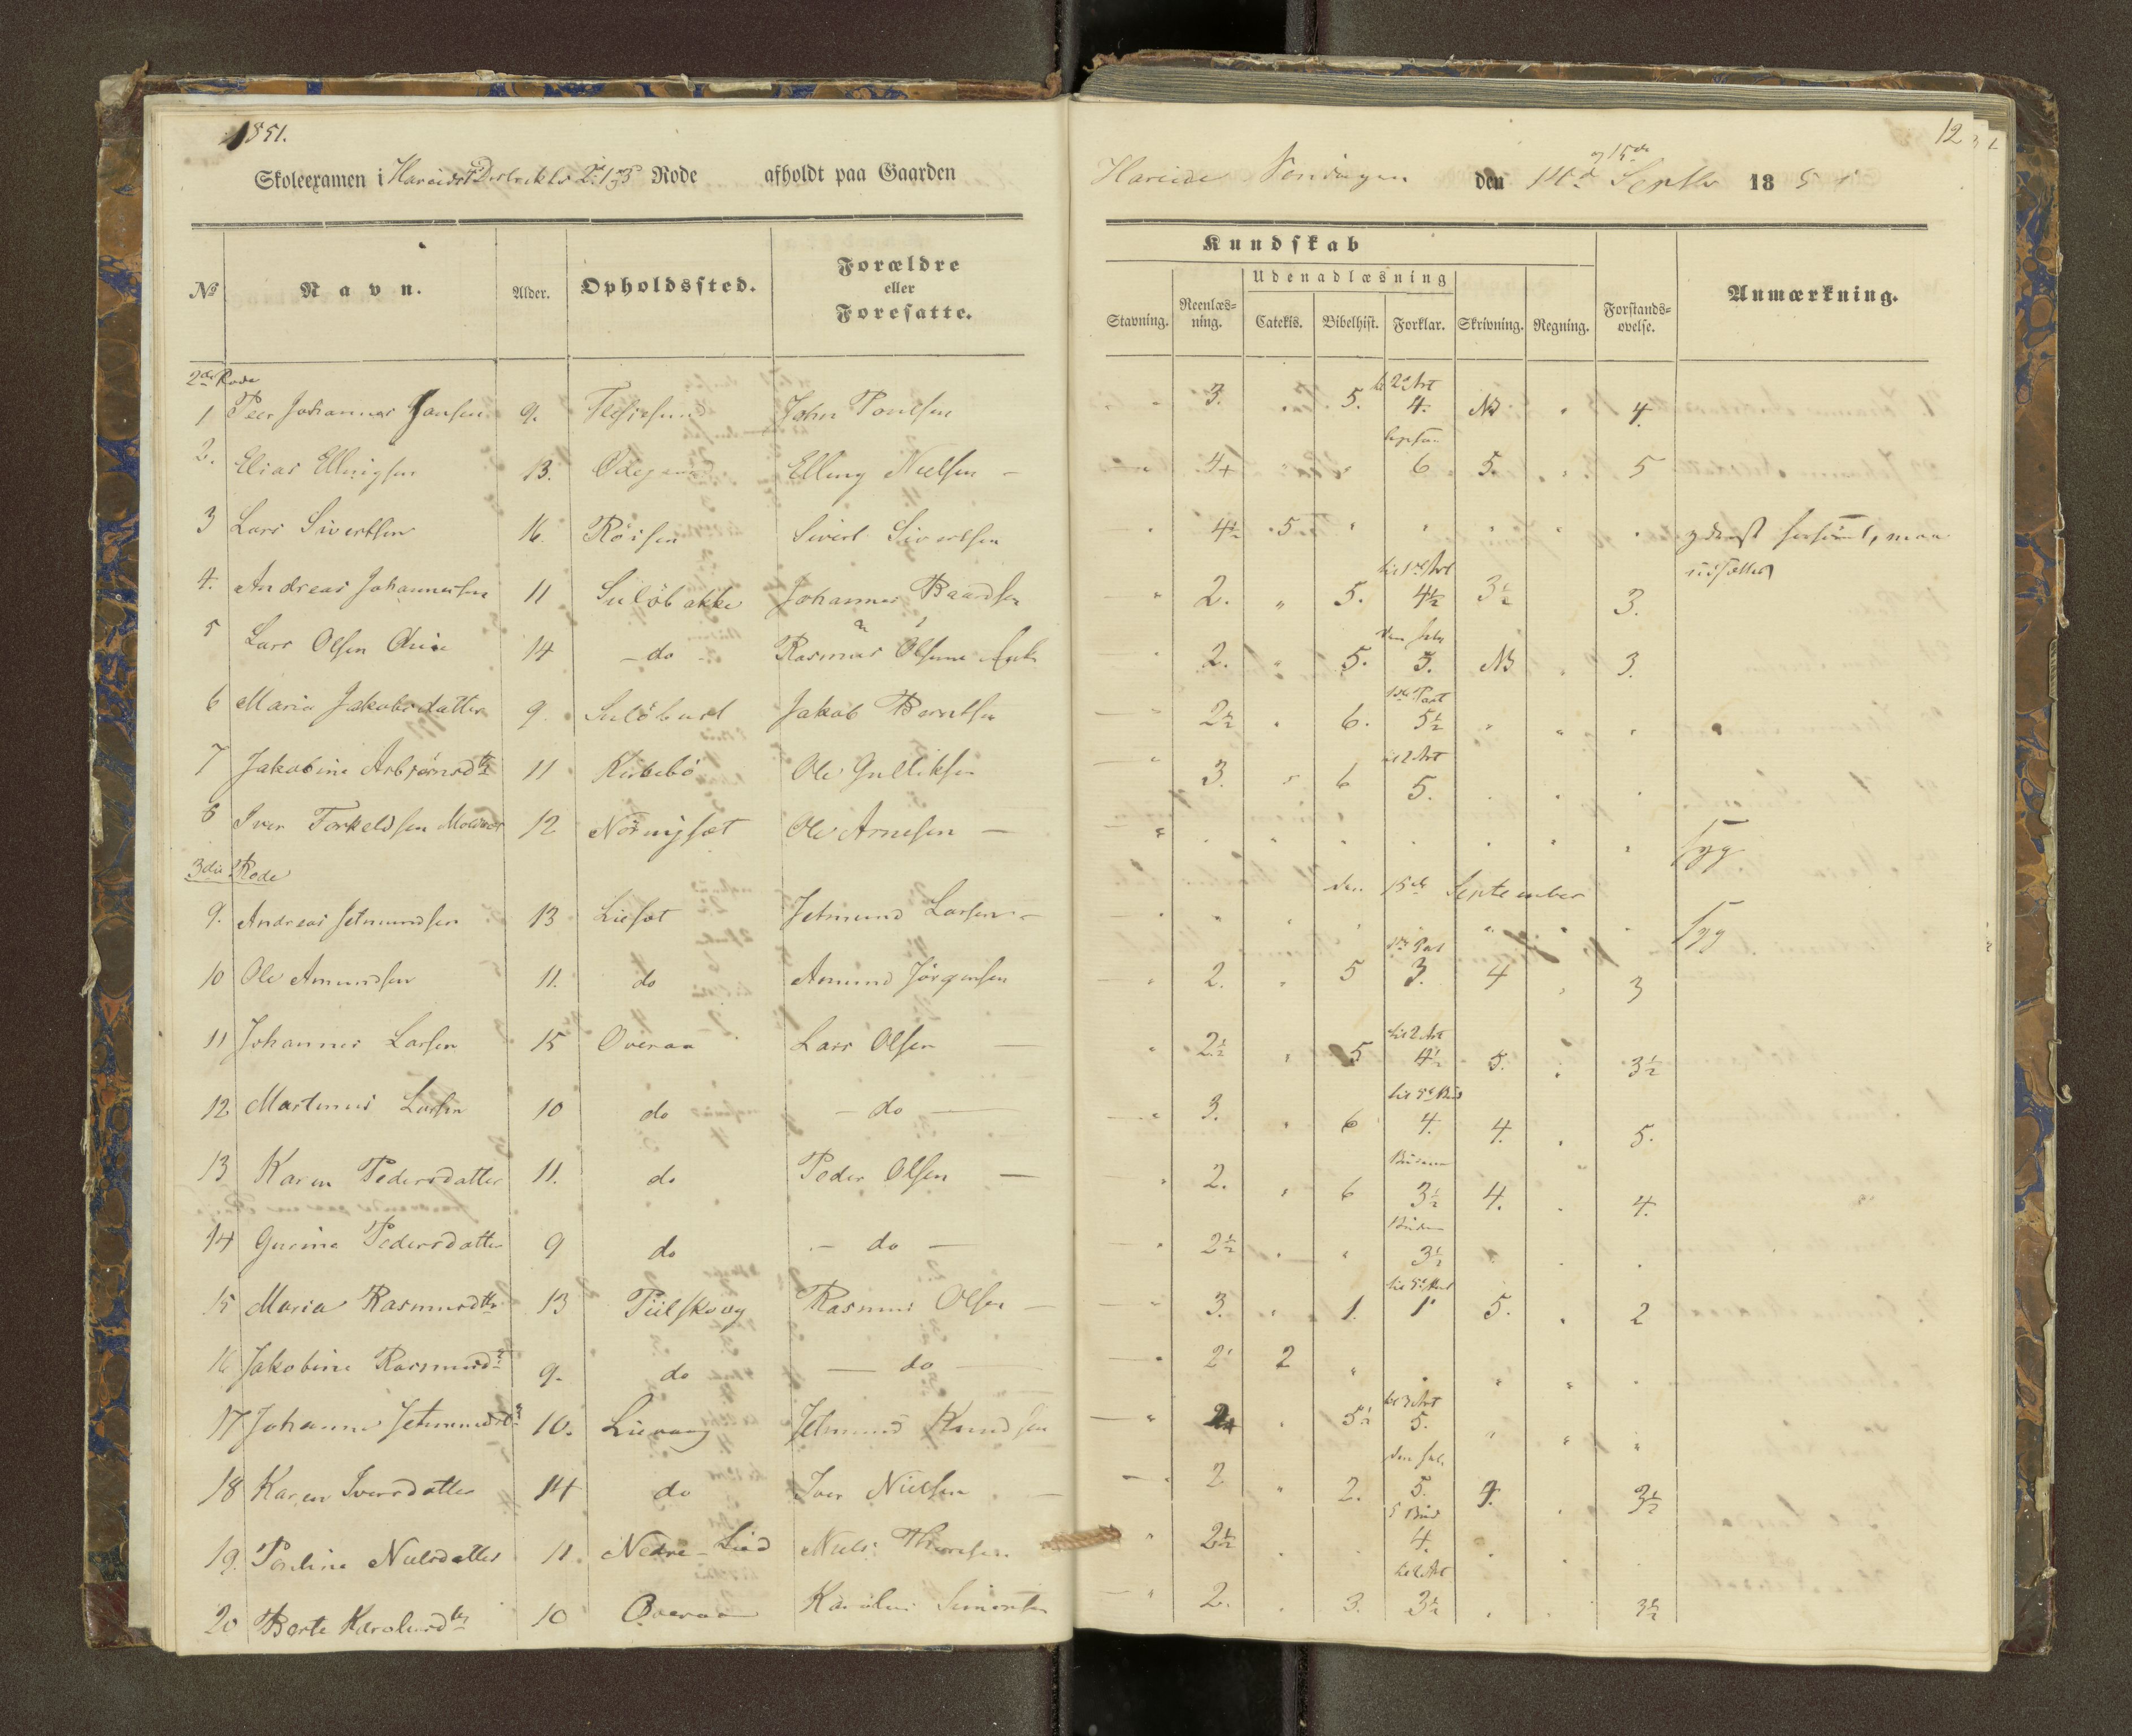 1851.
12
Skoleexamen i Hareids 2 Rode afholdt paa Gaarden
Hareide den 14de og 15de Septbr 1851
Kundskab
Udenadlæsning
№ Navn. Alder. Opholdssted. Forældre eller Foresatte.
Stavning. Reenlæs- ning. Catekis. Bibelhist. Forklar. Skrivning. Regning. Forstands- øvelse. Anmærkning.
2den Rode
1 Peer Johannes Jansen 9. John Poulsen 3. 5. 2 Art 4. NB 4.
2. Elias Ellingsen 13. Ødegaard Elling Nielsen 4 6 5. 5
3 Lars Sivertsen 16. Röisen Sivert Sivertsen 4½ 5
4. Andreas Johannesen 11 Sulöbakke Johannes Baardsen 2. 5. til 1ste Art 4½ 3½ 3.
5 Lars Olsen 14 do Rasmus Olsens 2. 5. 5. NB 3.
6 Maria Jakobsdatter 9. Jakob Berntsen 2½ 6. 1ste Part 5½
7 Jakobine Asbjörnsdtr 11 Kirkebö Ole Gulliksen 3. 6 til 2 Art 5.
8 Iver Torkeldsen 12 Ole Arnesen Syg
3die Rode
den 15de September
9. Andreas Jetmundsen 13 Liesæt Jetmund Larsen Syg
10 Ole Amundsen 11. do Amund Jörgensen 2. 5 1ste Part 3. 4 3
11 Johannes Larsen 15 Overaa Lars Olsen 2½ 5 til 2 Art 4½ 5. 3½
12 Martinus Larsen 10 do do 3. 6 til 5te Bud 4. 4. 5.
13 Karen Pedersdatter 11. do Peder Olsen 2. 6 3½ 4. 4.
14 Gurine Pedersdatter 9 do do 2½ 3½
15 Maria Rasmusdtr 13 Piilskoug Rasmus Olsen 3. 1. 1 5. 2
16 Jakobine Rasmusd. 9. do do 2 2
17 Johanne Jetmundsd. 10. Lievaag Jetmund Knudsen 5½ til 3 Art 5.
18 Karen Iversdatter 14 do Iver Nielsen 2 2. 5. 4. 3½
19. Pouline Nielsdatter 11 Nedre-Lied Niels 2½ 5 Bud 4.
20 Berte Karolusdtr 10 Overaa Karolus 2. 3. 3½ 3½